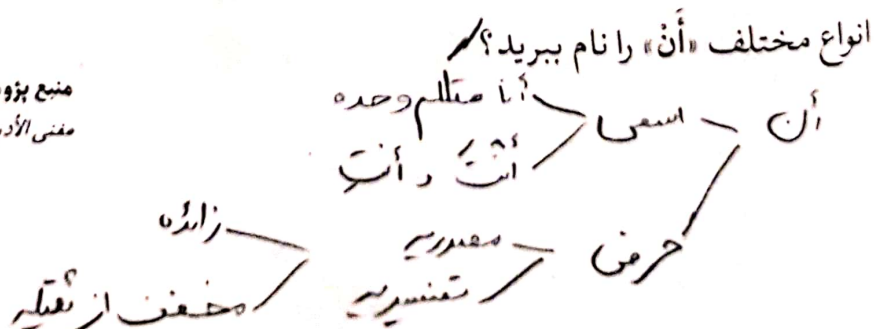 انواع مختلف «أَنْ» را نام ببرید؟
منبع پژو
مغنی الأد
أن
اسمی
أنا متکلم وحده
أنتَ و أنتِ
حرفی
مصدریه
تفسیریه
زائده
مخفف از ثقیله